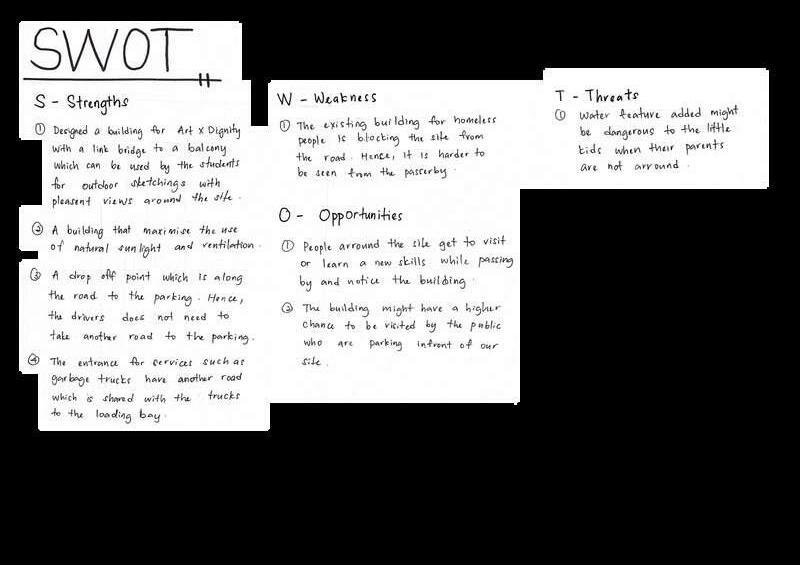 SWOT
S - Strengths
① Designed a building for Art x Dignity
with a link bridge to a balcony
which can be used by the students
for outdoor sketchings with
pleasent views around the site.
② A building that maximise the use
of natural sunlight and ventilation.
③ A drop off point which is along
the road to the parking. Hence,
the drivers does not need to
take another road to the parking.
④ The entrance for services such as
garbage trucks have another road
which is shared with the trucks
to the loading bay.
W - Weakness
① The existing building for homeless
people is blocking the site from
the road. Hence, it is harder to
be seen from the passerby.
O - Opportunities
① People arround the site get to visit
or learn a new skills while passing
by and notice the building.
② The building might have a higher
chance to be visited by the public
who are parking infront of our
site.
T - Threats
① Water feature added might
be dangerous to the little
kids when their parents
are not arround.